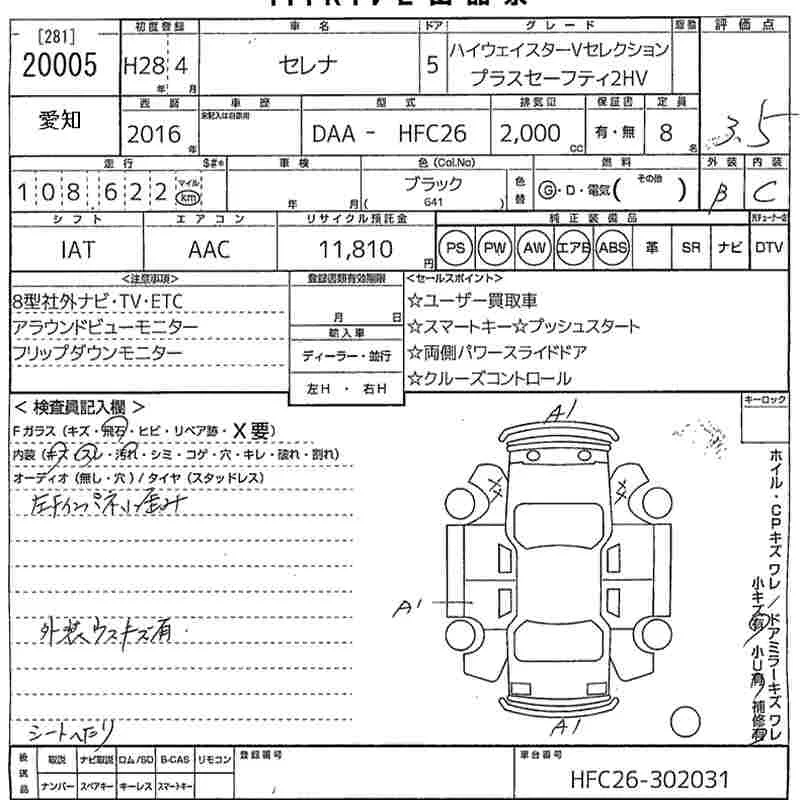 [281]
20005
初度登録
車名
ドア
グレード
評価点
H28 4
年 月
セレナ
5
ハイウェイスターVセレクション
プラスセーフティ2HV
3.5
愛知
西暦
車歴
型式
排気量
保証書
定員
2016
年
未記入は自家用
DAA - HFC26
2,000
cc
有・無
8
名
走行
車検
色(Col.No)
燃料
外装
内装
108,622
マイル
km
年 月
ブラック
( G41 )
色替
G・D・電気( その他 )
B
C
シフト
エアコン
リサイクル預託金
純正装備品
IAT
AAC
11,810
円
PS
PW
AW
エアB
ABS
革
SR
ナビ
DTV
<注意事項>
登録書類有効期限
<セールスポイント>
8型社外ナビ・TV・ETC
アラウンドビューモニター
フリップダウンモニター
月 日
輸入車
ディーラー・並行
左H ・ 右H
☆ユーザー買取車
☆スマートキー☆プッシュスタート
☆両側パワースライドドア
☆クルーズコントロール
キーロック
< 検査員記入欄 >
Fガラス(キズ・飛石・ヒビ・リペア跡・X要)
内装(キズ・スレ・汚れ・シミ・コゲ・穴・キレ・破れ・割れ)
オーディオ(無し・穴)/タイヤ(スタッドレス)
外装ウスキズ有
シートヘたり
A1
A1
A1
ホイル・CPキズワレ/ドアミラーキズワレ
小キズ有 小U有/補修有
後送品
取説
ナビ取説
ロム/SD
B-CAS
リモコン
ナンバー
スペアキー
キーレス
スマートキー
登録番号
車台番号
HFC26-302031